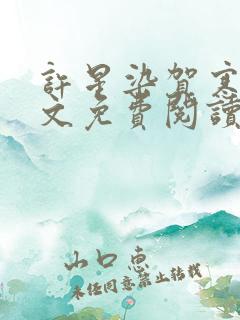 許星染賀寒
文免費閱讀
山口惠
未经同意禁止转载